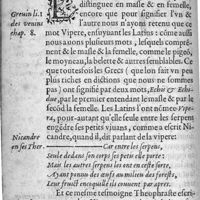 distinguee en masle & en femelle,
encore que pour signifier l'vn &
Greuin li. 1 l'autre nous n'ayons retenu que ce
des venins mot Vipere, ensuyuant les Latins: comme aussi
chap. 8. nous auons plusieurs mots, lesquels compren-
nent & le masle & la femelle, comme le pigeõ,
le moyneau, la belette & autres semblables. Ce
que toutesfois les Grecs (qui en leur fait vn
peu plus riches en dictions que nous ne sommes
pas) ont signifié par deux mots, Echis & Echi-
dne, par le premier entendant le masle & par le
second la femelle. Les Latins l'ont nommee Vi-
pera, pourautant qu'elle seule entre les serpens
engendre ses petits viuans, comme a escrit Ni-
Nicandre candre, quand il dit parlant de la vipere:
en ses Ther. Car entre les serpens,
Seule dedans son corps ses petis elle porte:
Mais les autres serpens les ont en ceste sorte,
Ayant ponnu des œufs au milieu des forests,
Leur fruict encoquillé ils couuent par apres.
Et ce mesme tesmoigne Theophraste escri-